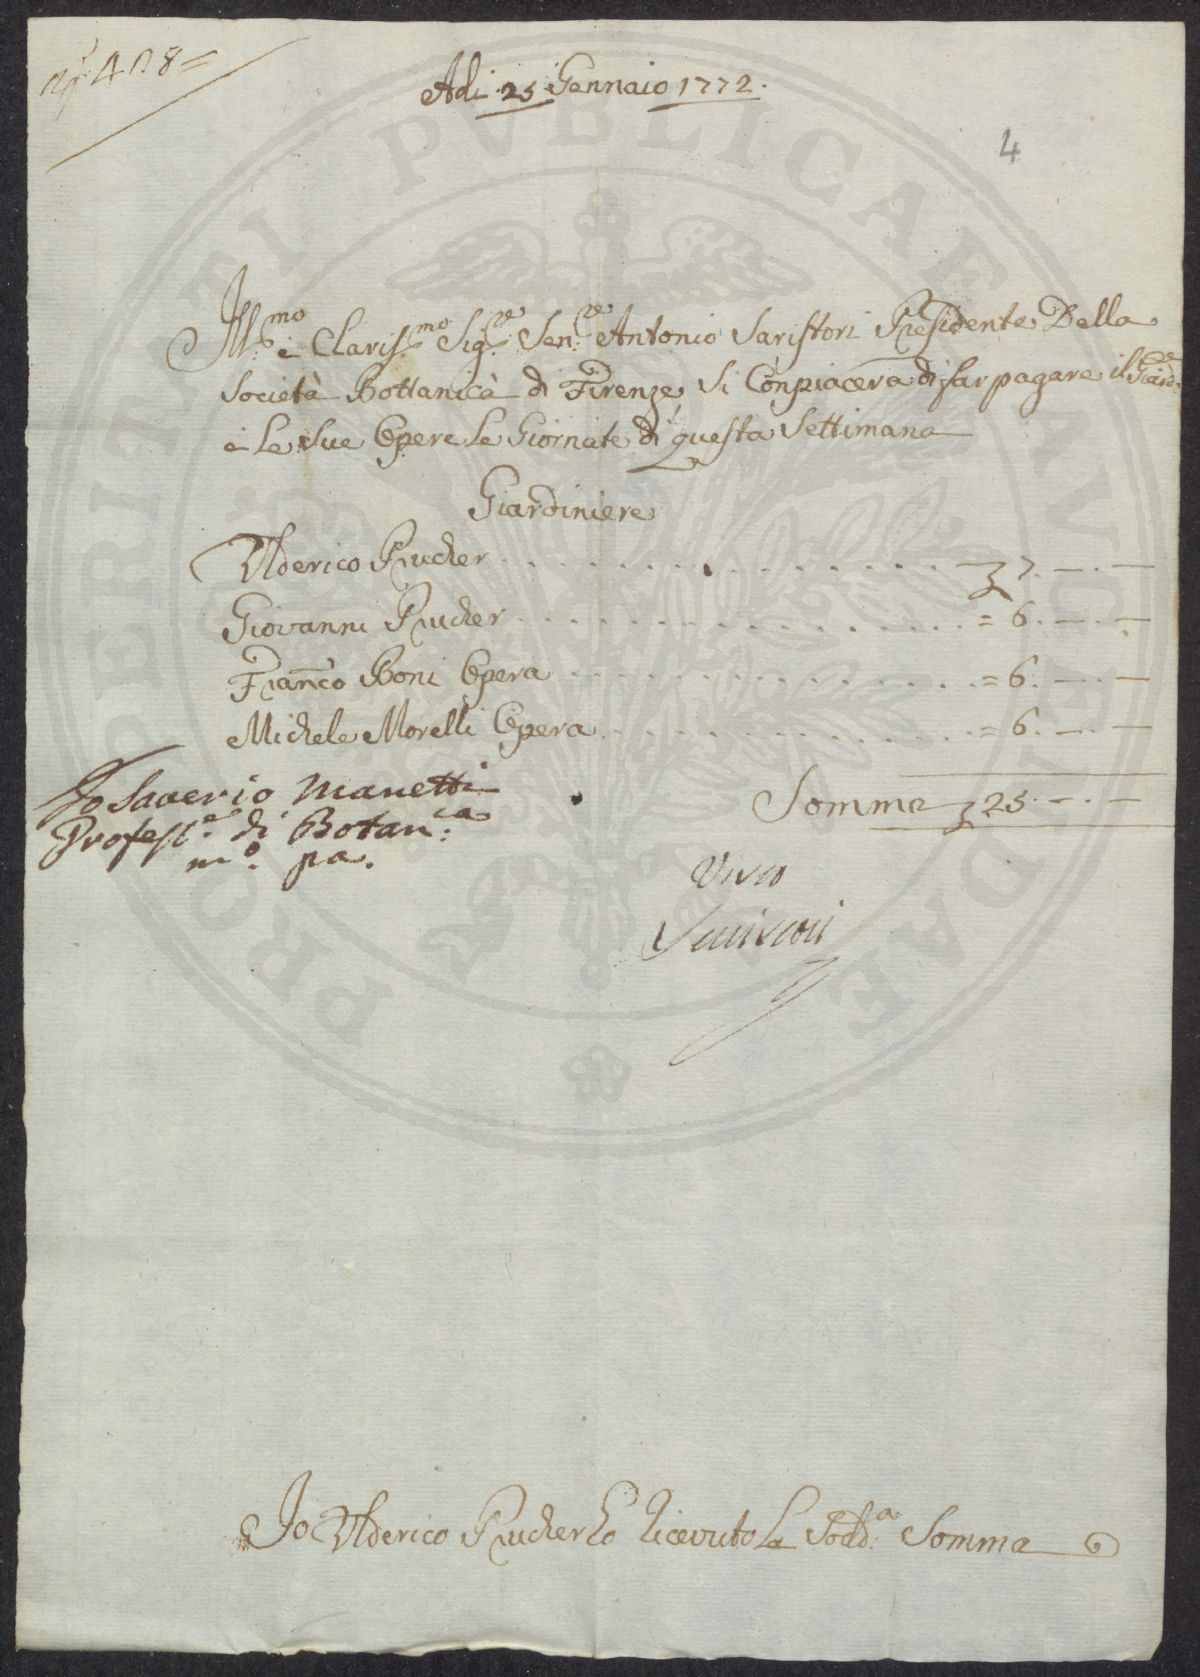 Adi 25 Gennaio 1772.
4
Ill.mo e Claris.mo Sig.re Sen.re Antonio Saristori Presidente Della
Società Bottanicà di Firenze, Si Conpiacera di far pagare il Giard.re
e Le Sue Opere Le Giornate di questa Settimana
Giardiniere
Ulderico Prucher . . . . . . . . . . . . . . . . 7. — . —
Giovanni Prucher . . . . . . . . . . . . . . . . = 6. — . —
Franc̃o Boni Opera . . . . . . . . . . . . . . = 6. — . —
Michele Morelli Opera . . . . . . . . . . . . = 6. — . —
Somma 25. — . —
Io Saverio Manetti
Profess.e di Botan.ca
m.o pa.
Visto
Io Ulderico Prucher ho Ricevuto La Sodd.a Somma
PROPRIETATI PVBLICAE AVGENDAE